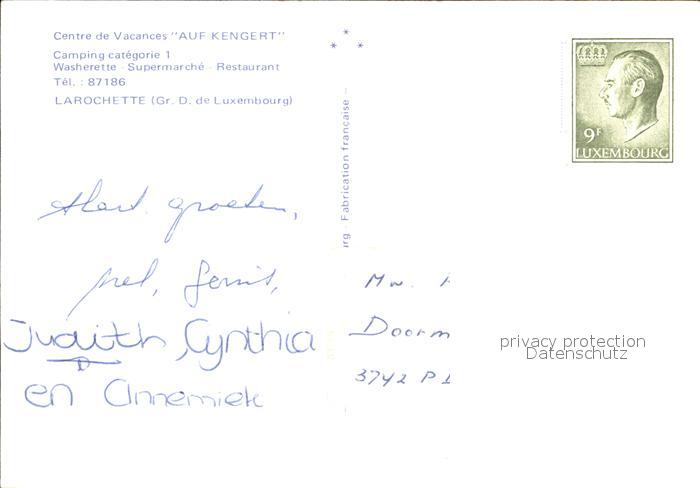 Centre de Vacances "AUF KENGERT"
Camping catégorie 1
Washerette - Supermarché - Restaurant
Tél. : 87186
LAROCHETTE (Gr. D. de Luxembourg)
Hart. groeten,
Judith, Cynthia
en Annemiek
rg - Fabrication française -
9F
LUXEMBOURG
Mw.
Doorm
3742 P
privacy protection
Datenschutz